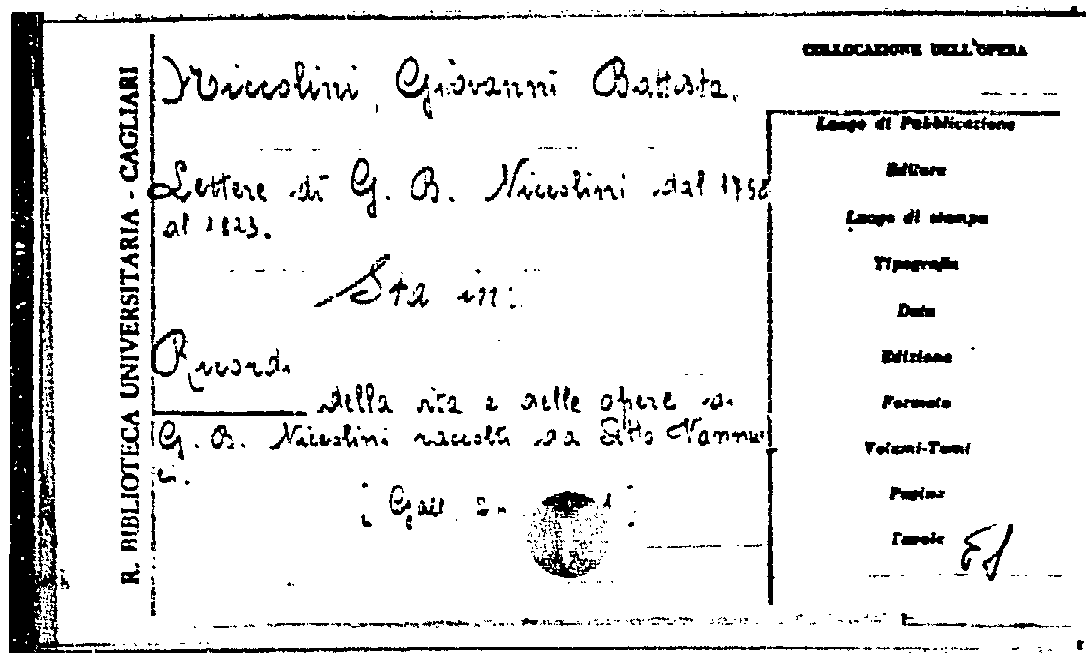 R. BIBLIOTECA UNIVERSITARIA - CAGLIARI
Niccolini, Giovanni Battista.
Lettere di G. B. Niccolini dal 1798
al 1823.
Sta in:
Ricordi
della vita e delle opere di
G. B. Niccolini raccolti da Atto Vannu
ci.
[Gall.
COLLOCAZIONE DELL'OPERA
Luogo di Pubblicazione
Editore
Luogo di stampa
Tipografia
Data
Edizione
Formato
Volumi-Tomi
Pagine
Tavole